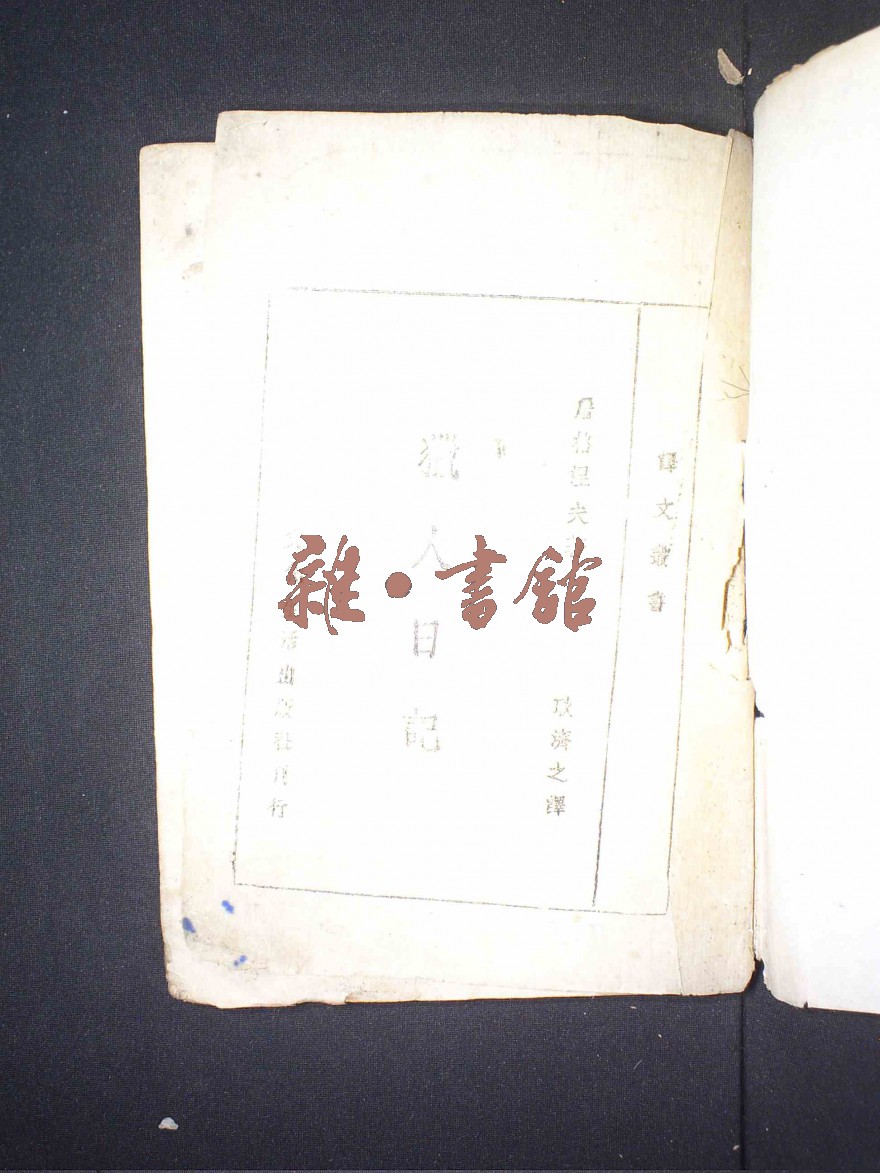 譯文叢書
屠格涅夫
耿濟之譯
獵人日記
活出版社刊行
雜·書館